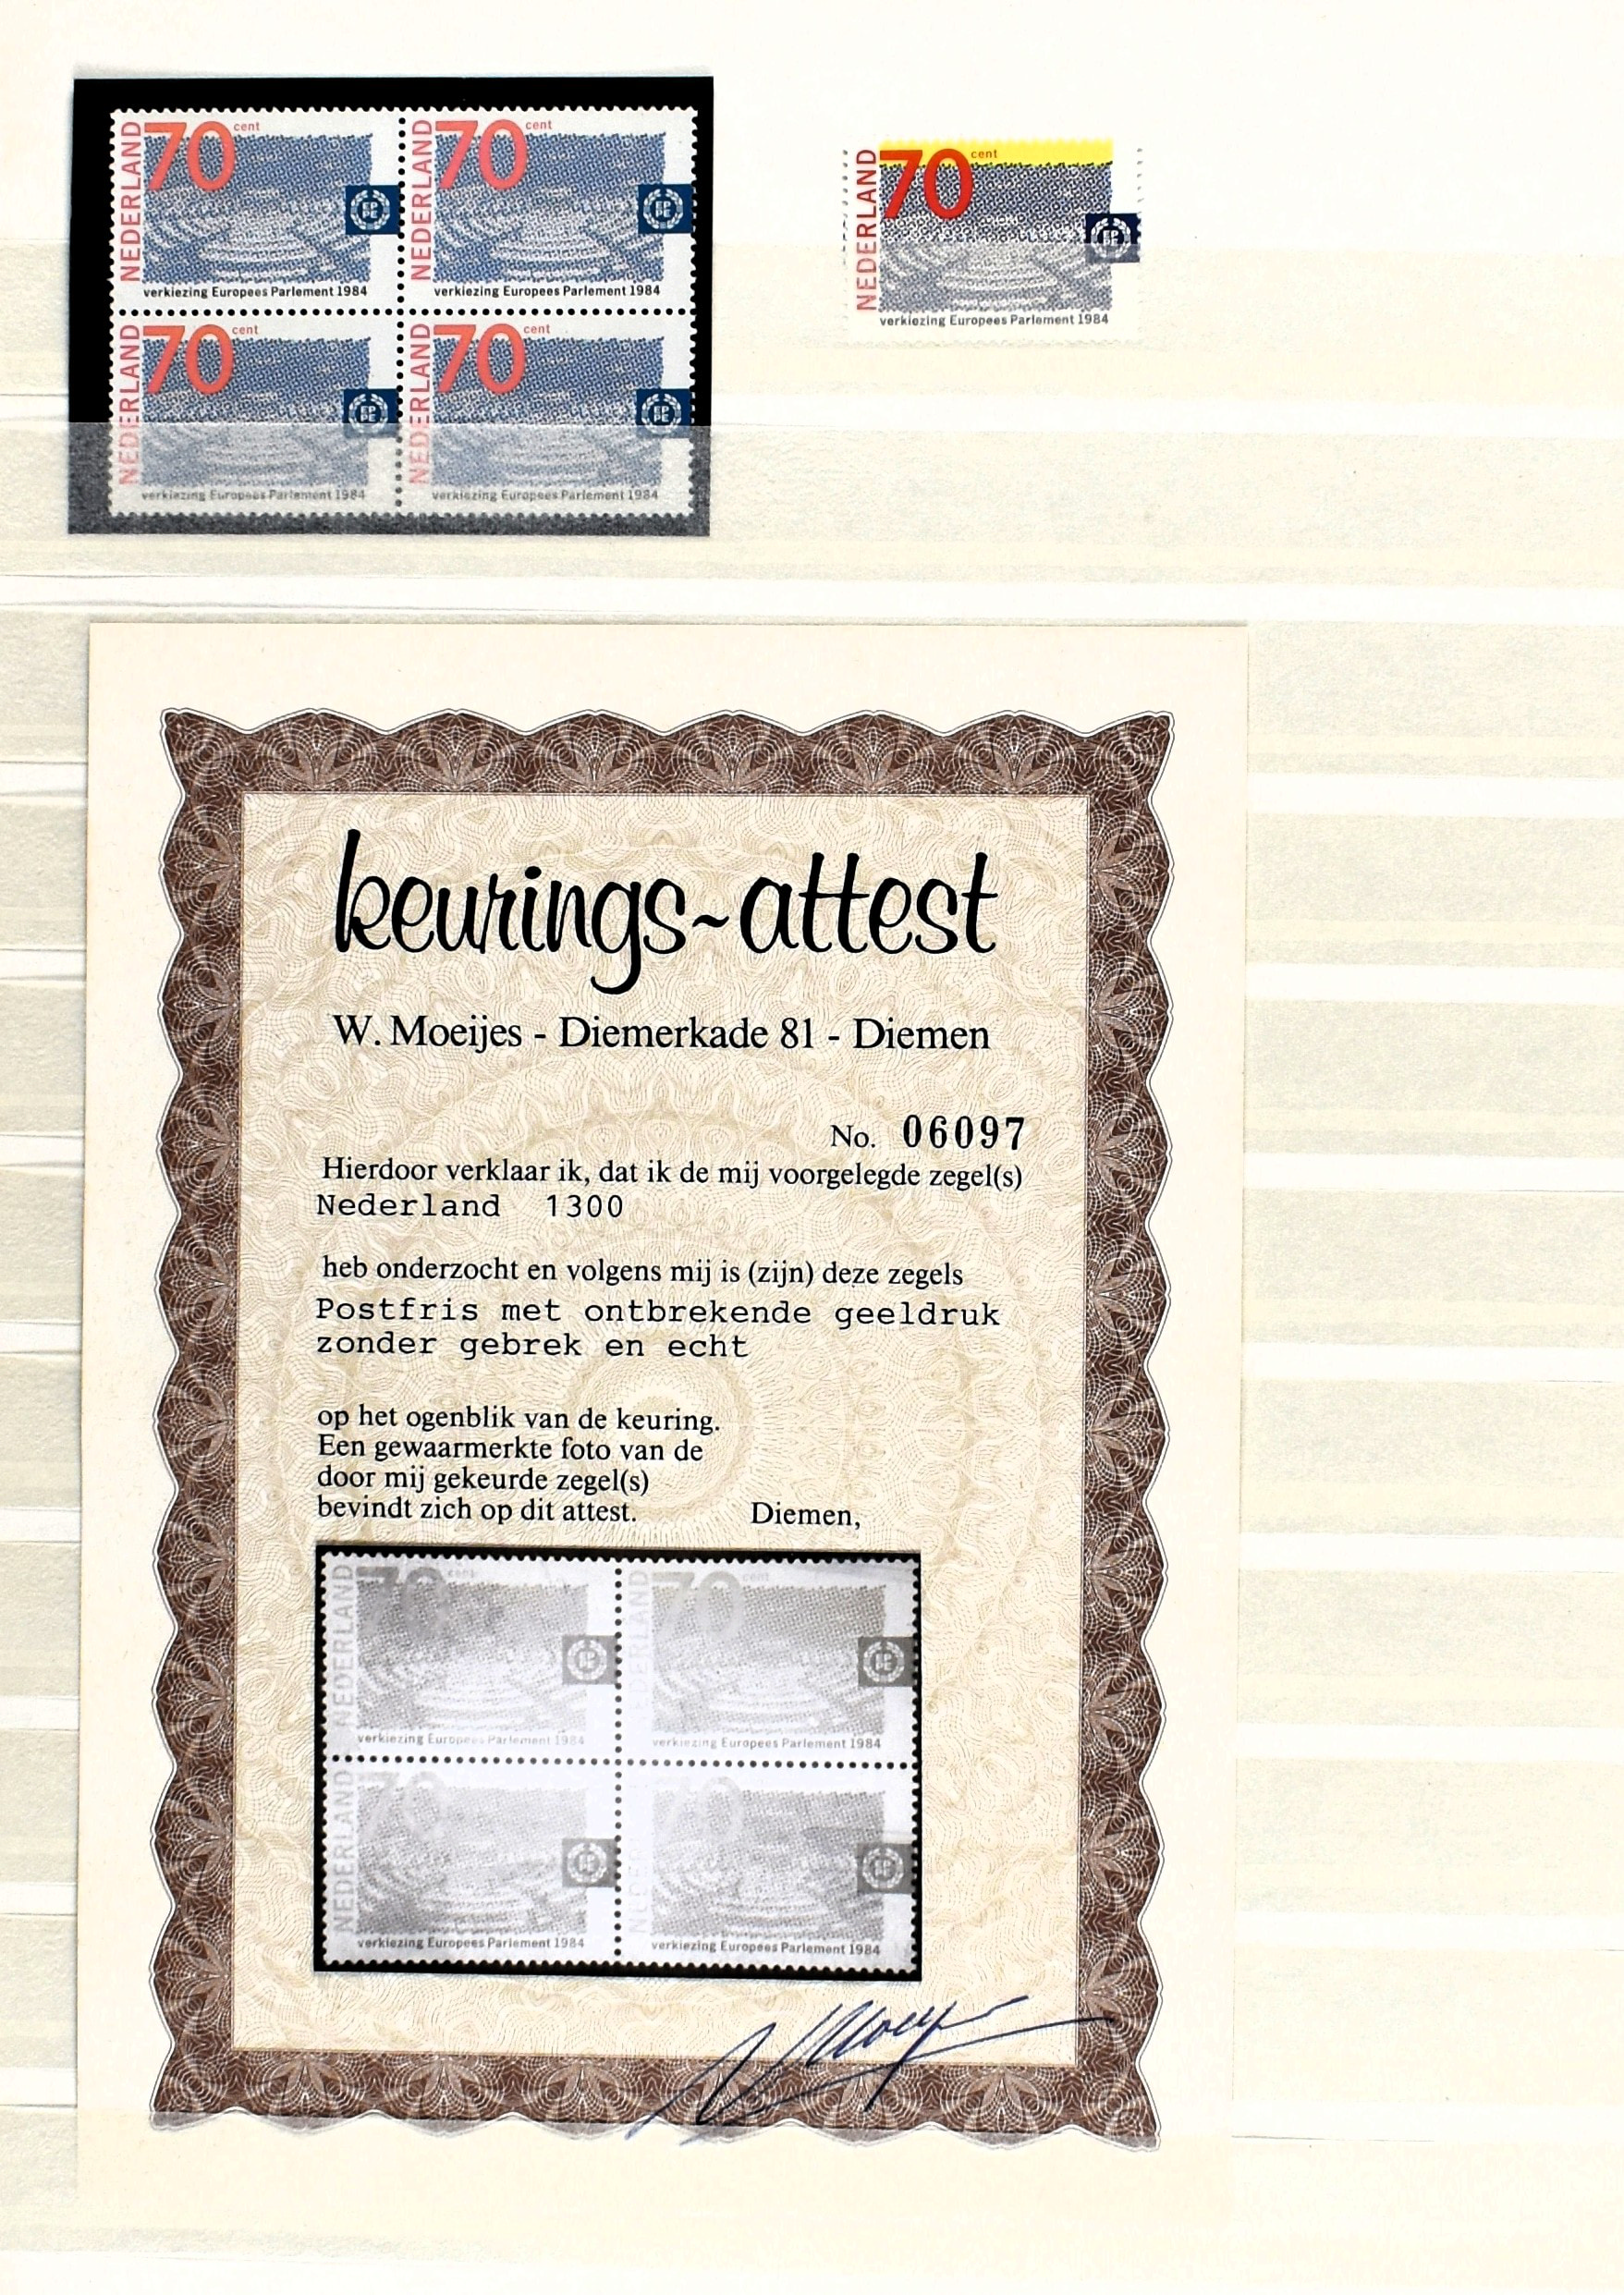 70 cent
NEDERLAND
verkiezing Europees Parlement 1984
70 cent
NEDERLAND
verkiezing Europees Parlement 1984
70 cent
NEDERLAND
verkiezing Europees Parlement 1984
70 cent
NEDERLAND
verkiezing Europees Parlement 1984
70 cent
NEDERLAND
verkiezing Europees Parlement 1984
keurings~attest
W. Moeijes - Diemerkade 81 - Diemen
No. 06097
Hierdoor verklaar ik, dat ik de mij voorgelegde zegel(s)
Nederland 1300
heb onderzocht en volgens mij is (zijn) deze zegels
Postfris met ontbrekende geeldruk
zonder gebrek en echt
op het ogenblik van de keuring.
Een gewaarmerkte foto van de
door mij gekeurde zegel(s)
bevindt zich op dit attest. Diemen,
70 cent
NEDERLAND
verkiezing Europees Parlement 1984
70 cent
NEDERLAND
verkiezing Europees Parlement 1984
70
NEDERLAND
verkiezing Europees Parlement 1984
70
verkiezing Europees Parlement 1984